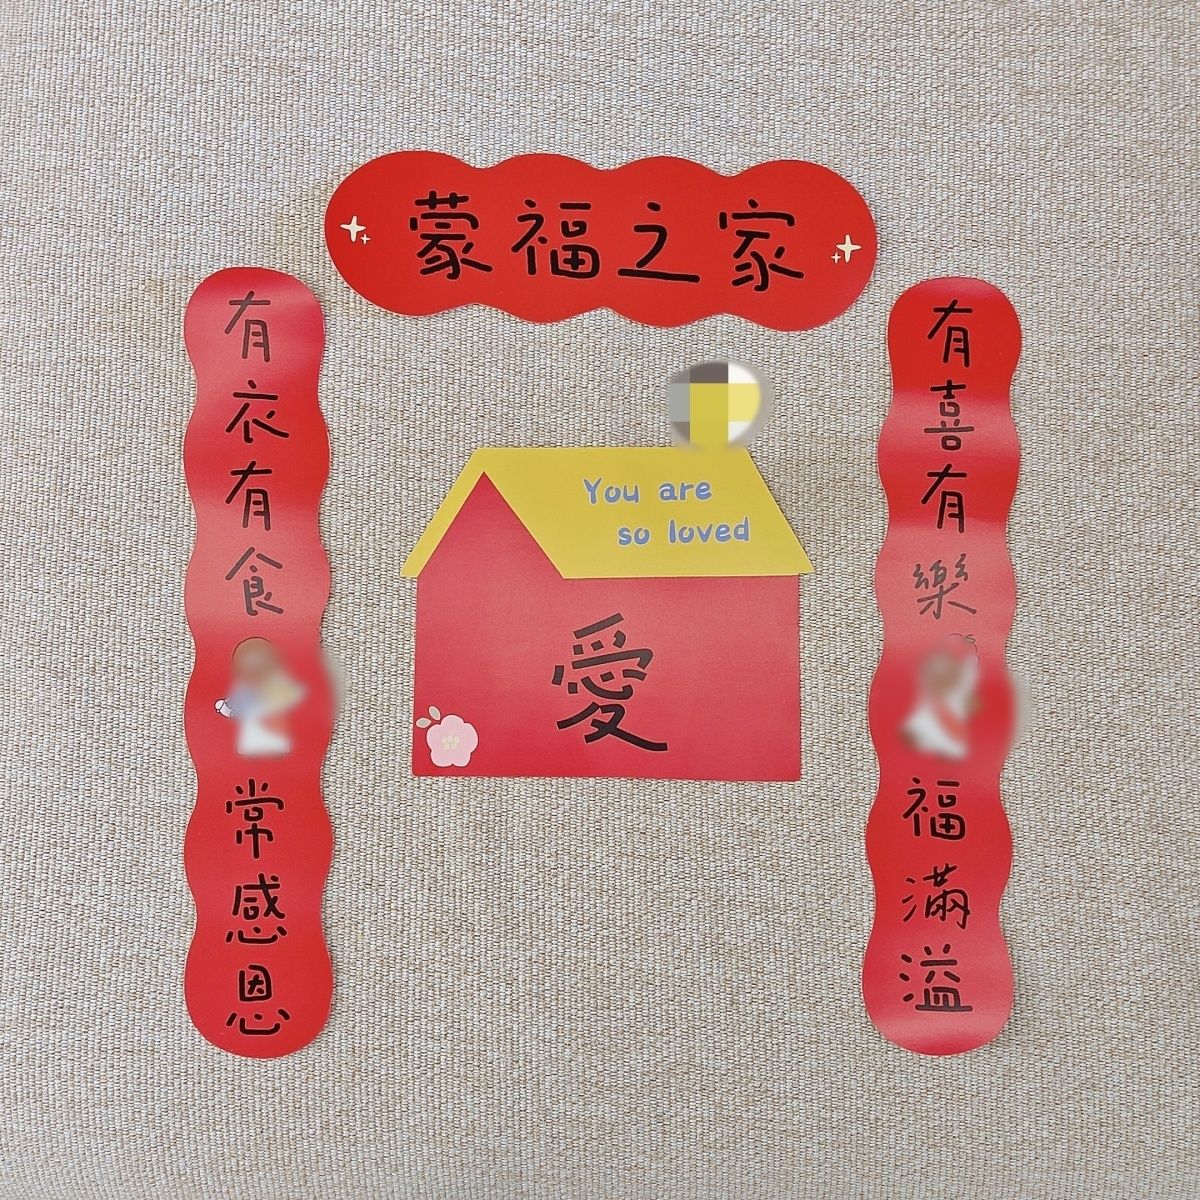 蒙福之家
有喜有樂
福滿溢
有衣有食
常感恩
You are
so loved
愛